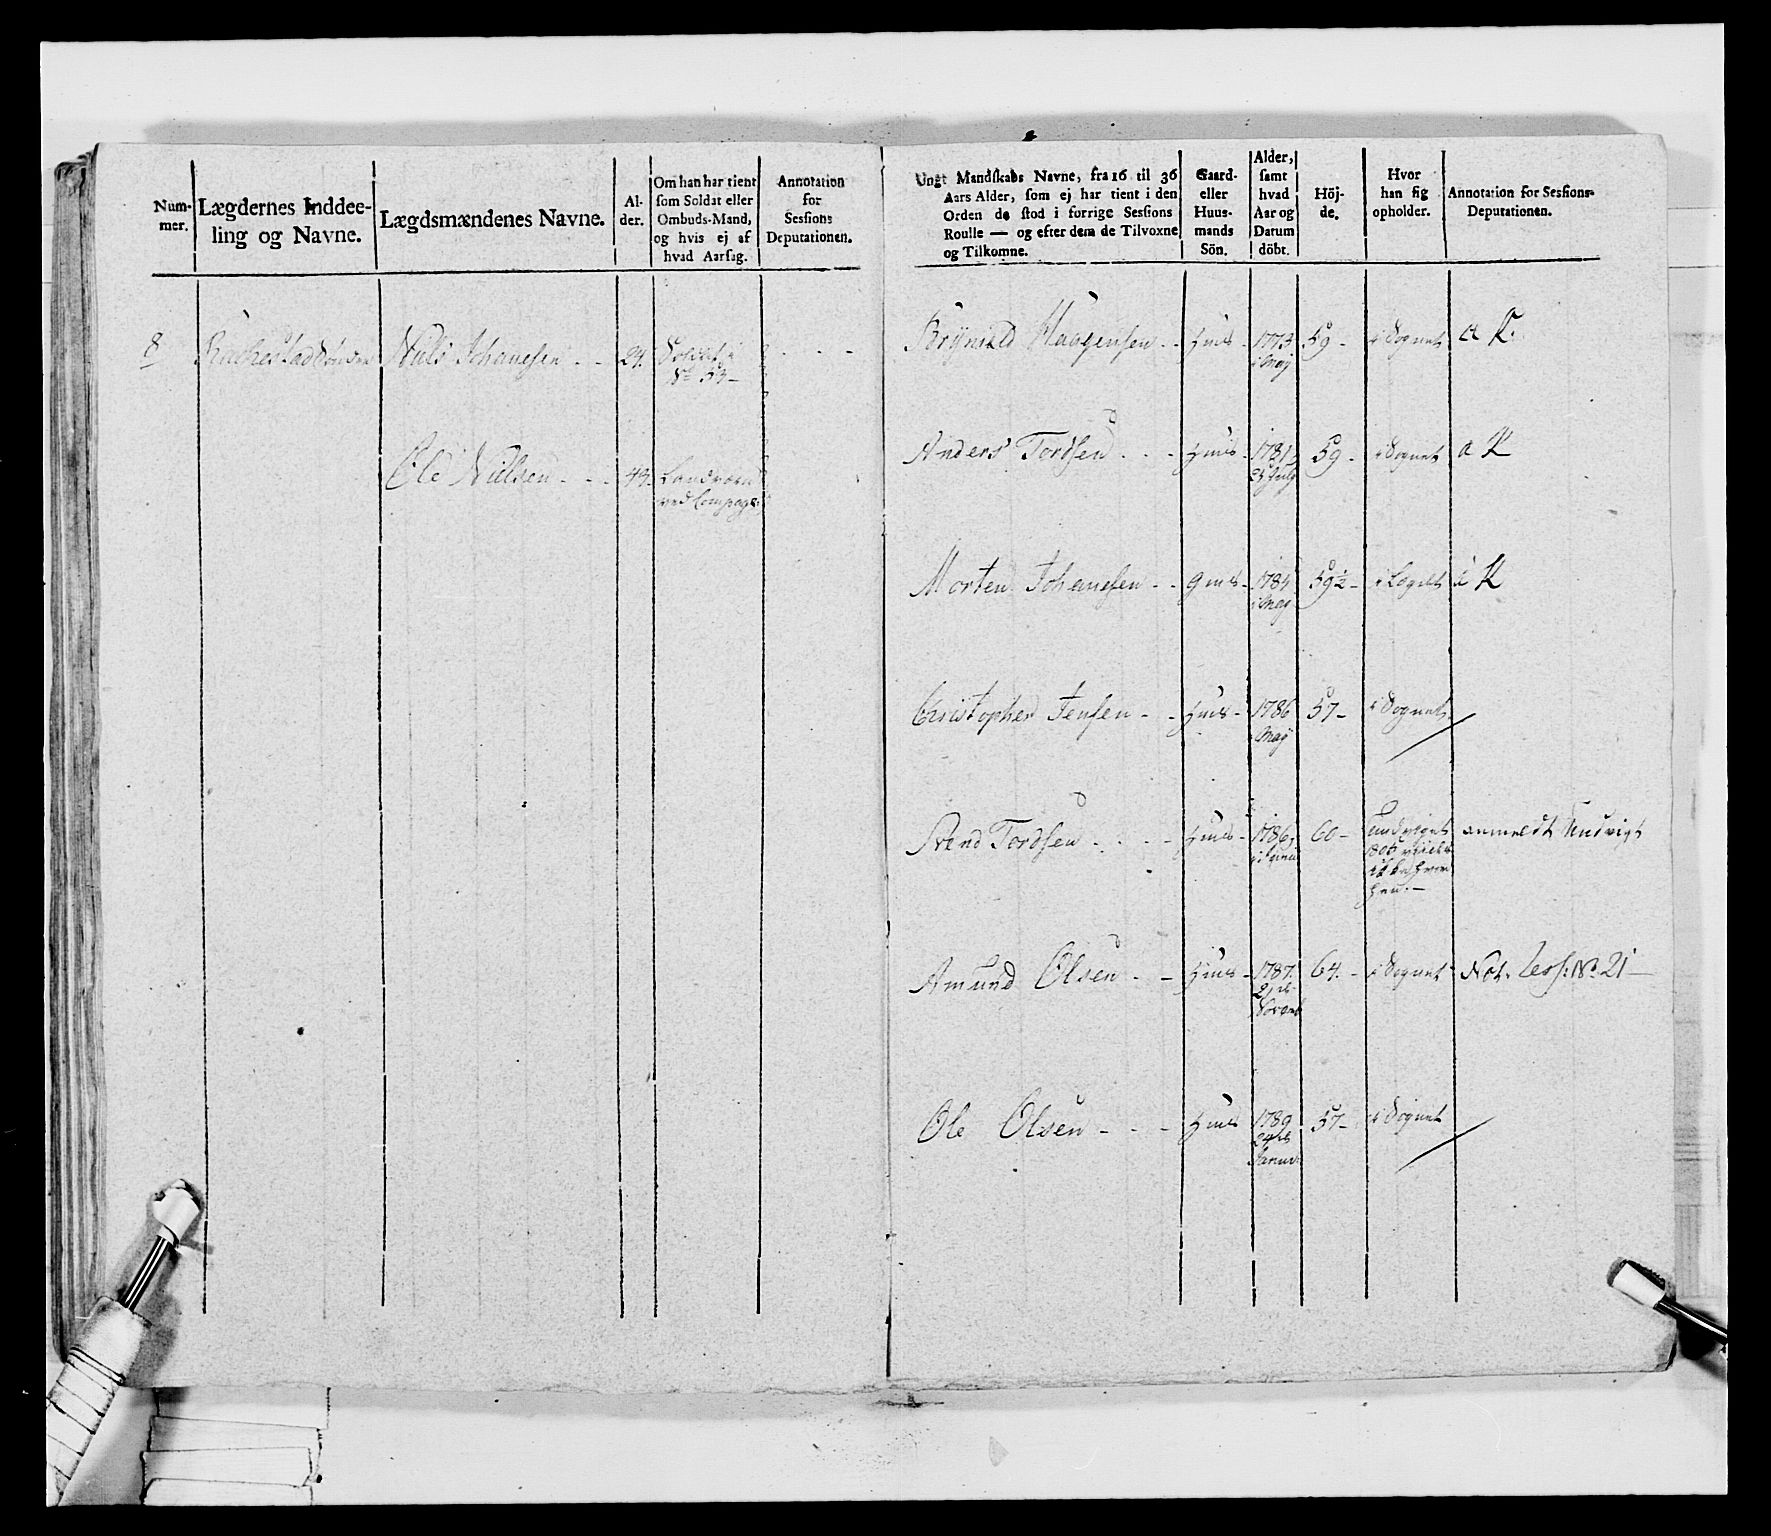 Num-
mer.
Lægdernes Inddee-
ling og Navne.
Lægdsmændenes Navne.
Al-
der.
Om han har tient
som Soldat eller
Ombuds-Mand,
og hvis ej af
hvad Aarsag.
Annotation
for
Sessions
Deputationen.
8
Niels Johanesen - - 24. Soldat
No 53 -
Ole Nielsen - - - 43. Landværn
ved Compagn:
Ungt Mandskabs Navne, fra 16 til 36
Aars Alder, som ej har tient i den
Orden de stod i forrige Sessions
Roulle — og efter dem de Tilvoxne
og Tilkomne.
Gaard-
eller
Huus-
mands
Sön.
Alder,
samt
hvad
Aar og
Datum
döbt.
Höj-
de.
Hvor
han sig
opholder.
Annotation for Sessions-
Deputationen.
Brynild Haagensen - - Huus - 1773 59 - i Sognet a K.
i May
Anders Tordsen - - - Huus - 1781 59 - i Sognet a K
25 July
Morten Johanesen - - Huus - 1784 59½ - i Lægdet a K
i May
Christopher Jensen - - Huus - 1786 57 - i Sognet
May
Svend Tordsen - - - - Huus - 1786 60 - undviget anmeldt Undvigt
1805
hen. -
Amund Olsen - - Huus - 1787. 64. - i Sognet Not. No 21 -
21de
Novemb
Ole Olsen - - - Huus 1789 57 - i Sognet
Januar